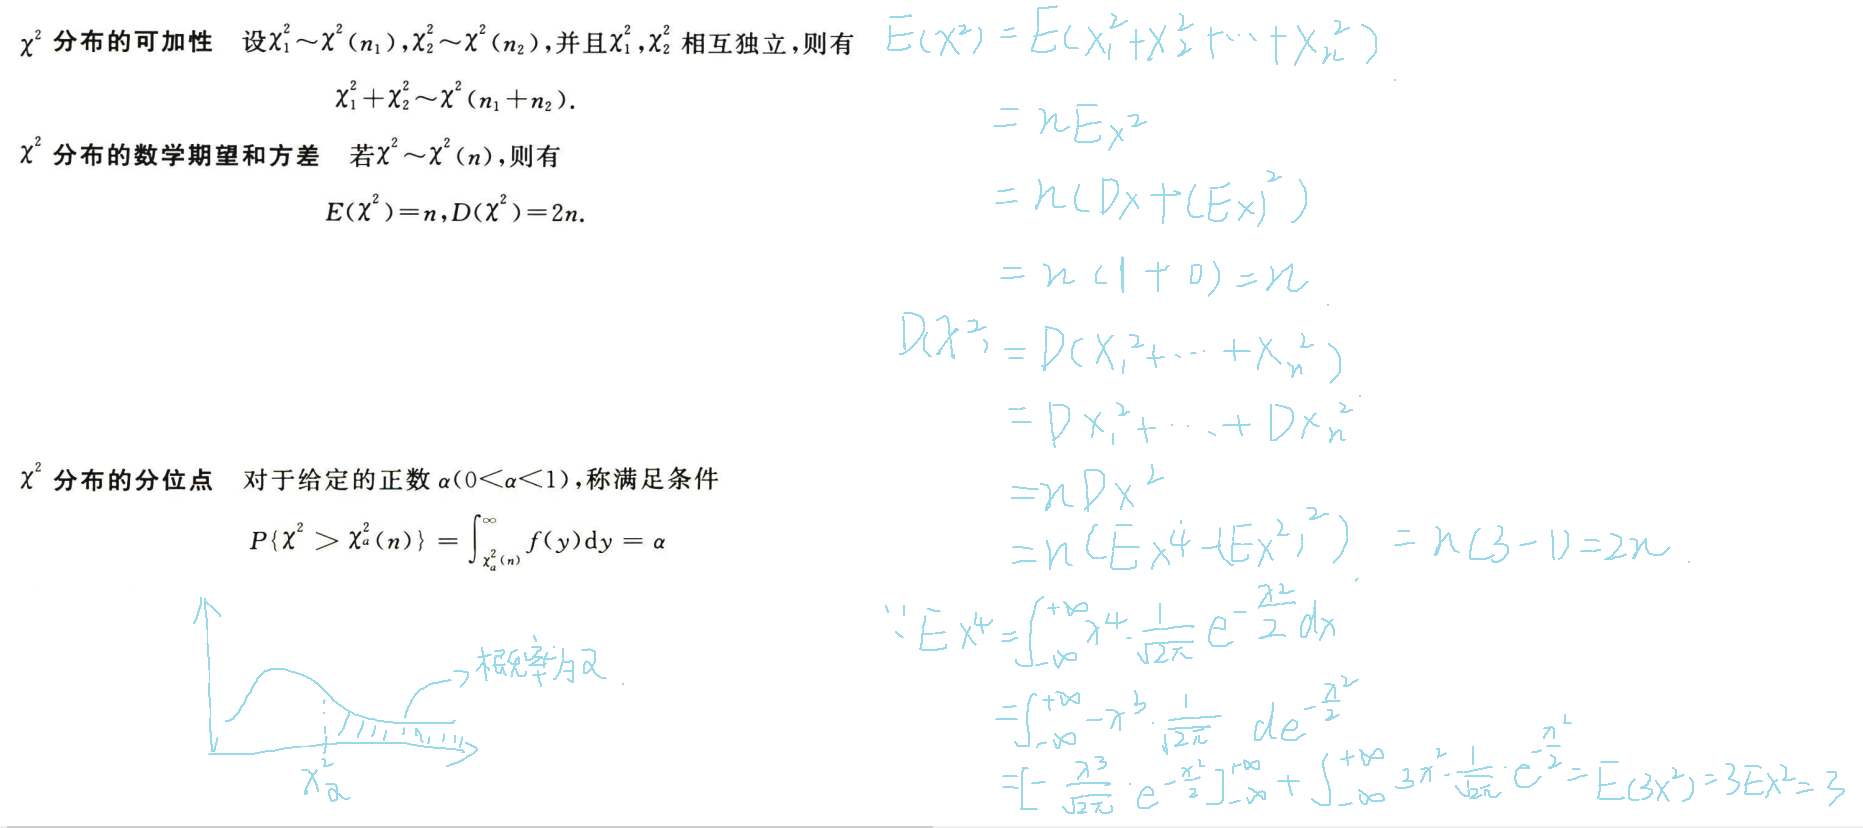 χ² 分布的可加性 设χ₁²~χ²(n₁),χ₂²~χ²(n₂),并且χ₁²,χ₂² 相互独立,则有
χ₁²+χ₂²~χ²(n₁+n₂).
χ² 分布的数学期望和方差 若χ²~χ²(n),则有
E(χ²)=n,D(χ²)=2n.
χ² 分布的分位点 对于给定的正数 α(0<α<1),称满足条件
P{χ² > χ²_α(n)} = ∫_{χ²_α(n)}^{∞} f(y)dy = α
概率为α.
χ²_α
E(χ²) = E(X₁²+X₂²+⋯+Xₙ²)
= nEx²
= n(Dx+(Ex)²)
= n(1+0)=n.
D(χ²) = D(X₁²+⋯+Xₙ²)
= Dx₁²+⋯+Dxₙ²
=nDx²
=n(Ex⁴-(Ex²)²) = n(3-1)=2n.
∵Ex⁴=∫_{-∞}^{+∞} x⁴·1/√(2π) e^{-x²/2}dx
=∫_{-∞}^{+∞} -x³·1/√(2π) de^{-x²/2}
=[-x³/√(2π)·e^{-x²/2}]_{-∞}^{+∞}+∫_{-∞}^{+∞} 3x²·1/√(2π)·e^{-x²/2}=E(3x²)=3Ex²=3